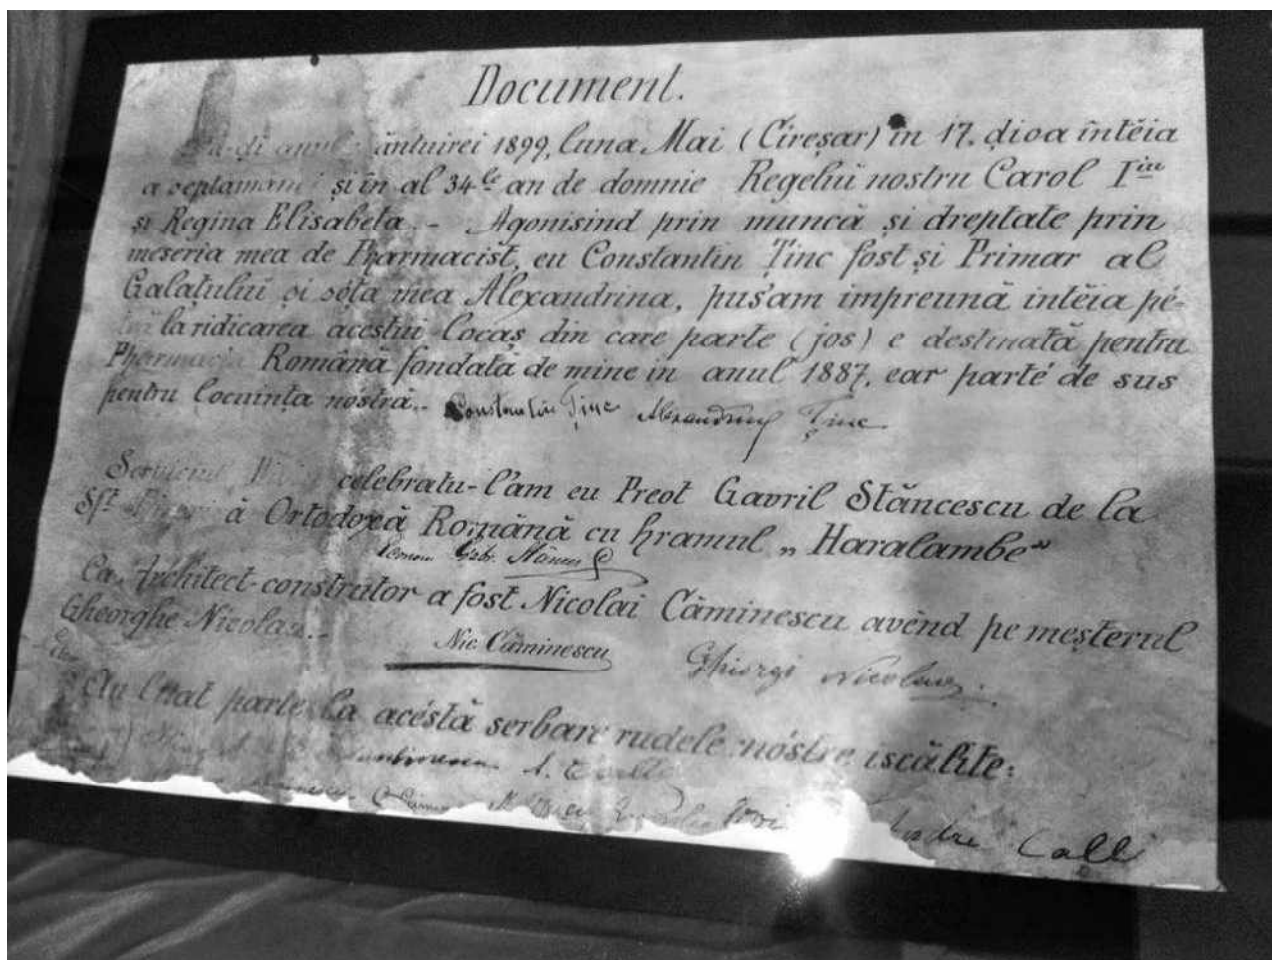 Document.
anul ântuirei 1899, luna Mai (Cireșar) în 17. dioa întëia
a septamâni și în al 34le an de domnie Regelui nostru Carol Iiu
și Regina Elisabeta.- Agonisind prin muncă și dreptate prin
meseria mea de Pharmacist, eu Constantin Ținc fost și Primar al
Galațului și sóța mea Alexandrina, pus'am impreună intëia pé-
la ridicarea acestui locaș din care parte (jos) e destinată pentru
Pharmacia Română fondată de mine in anul 1887, ear parte de sus
pentru locuința nóstră.- Constantin Ținc Alexandrina Ținc
Serviciul celebratu-l'am eu Preot Gavril Stăncescu de la
Sft. Ortodoxă Română cu hramul „Haralambe"
Ca Architect-construtor a fost Nicolai Căminescu avënd pe meșterul
Gheorghe Nicolau.-
Nic. Căminescu Ghiorgi Nicolau.
Au luat parte la acéstă serbare rudele nóstre iscălite:
Calli